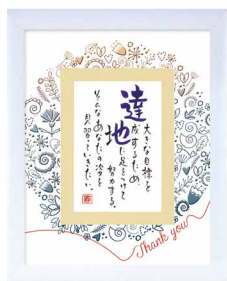 達
大きな目標を
成するため、
地
に足をつけて
努力する。
そんなあなたの姿を
見習っていきたい。
Thank you